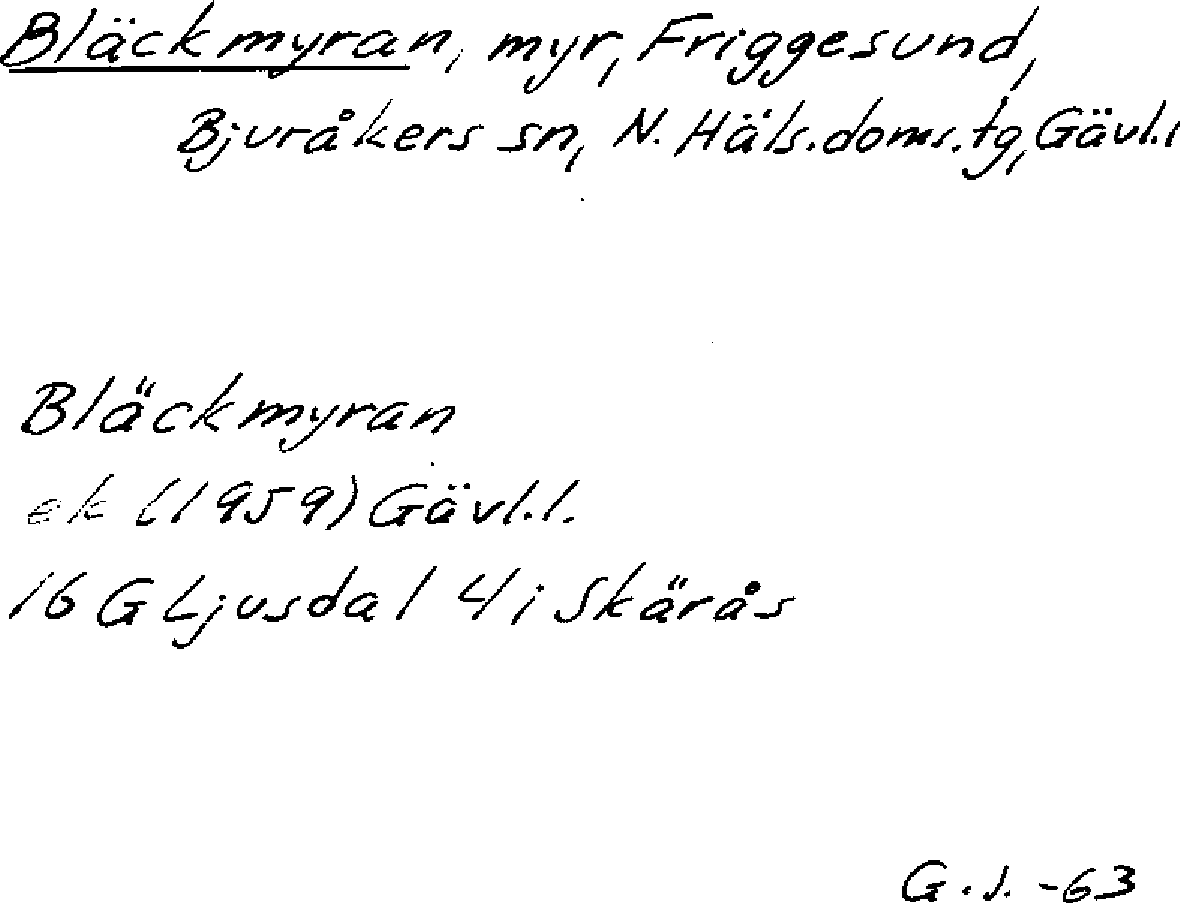 Bläckmyran, myr, Friggesund,
Bjuråkers sn, N. Häls.doms.tg, Gävl.l
Bläckmyran
ek (1959) Gävl.l.
16 G Ljusdal 4 i Skärås
G.J. -63